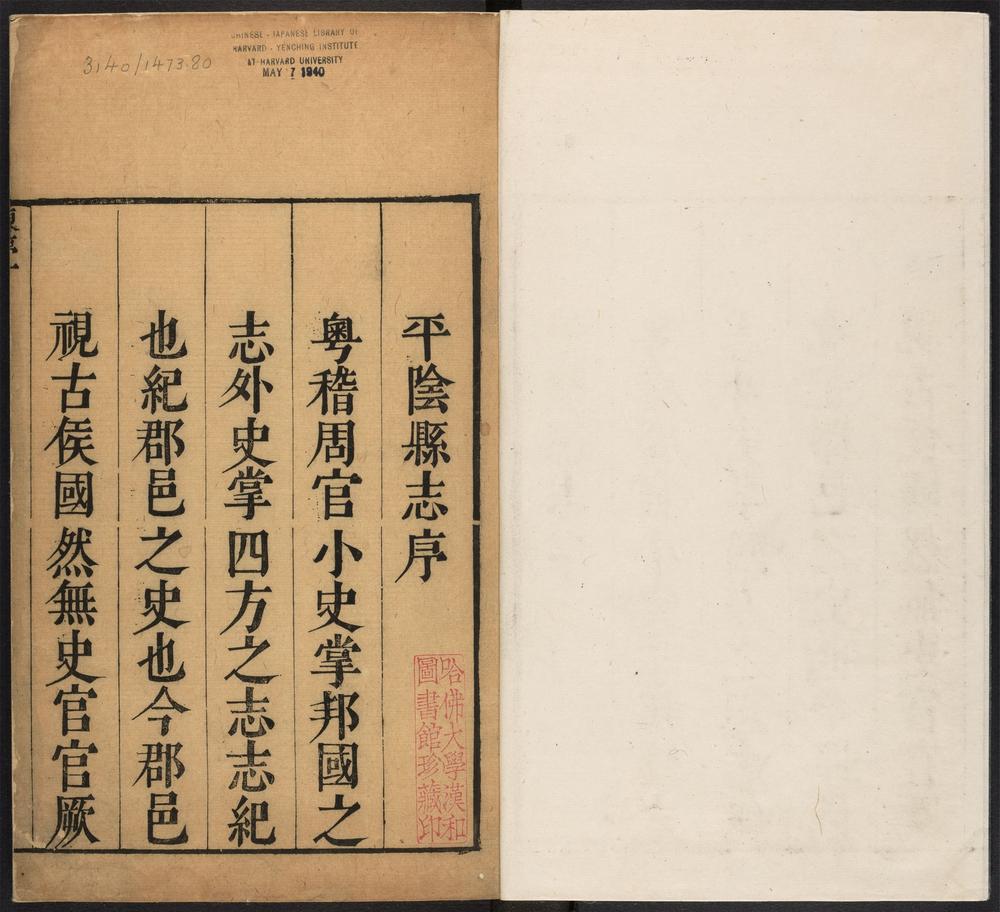 3140/1473.80
CHINESE - JAPANESE LIBRARY OF
HARVARD - YENCHING INSTITUTE
AT HARVARD UNIVERSITY
MAY 7 1940
平陰縣志序
粵稽周官小史掌邦國之
志外史掌四方之志志紀
也紀郡邑之史也今郡邑
視古侯國然無史官官厥
哈佛大學漢和
圖書館珍藏印